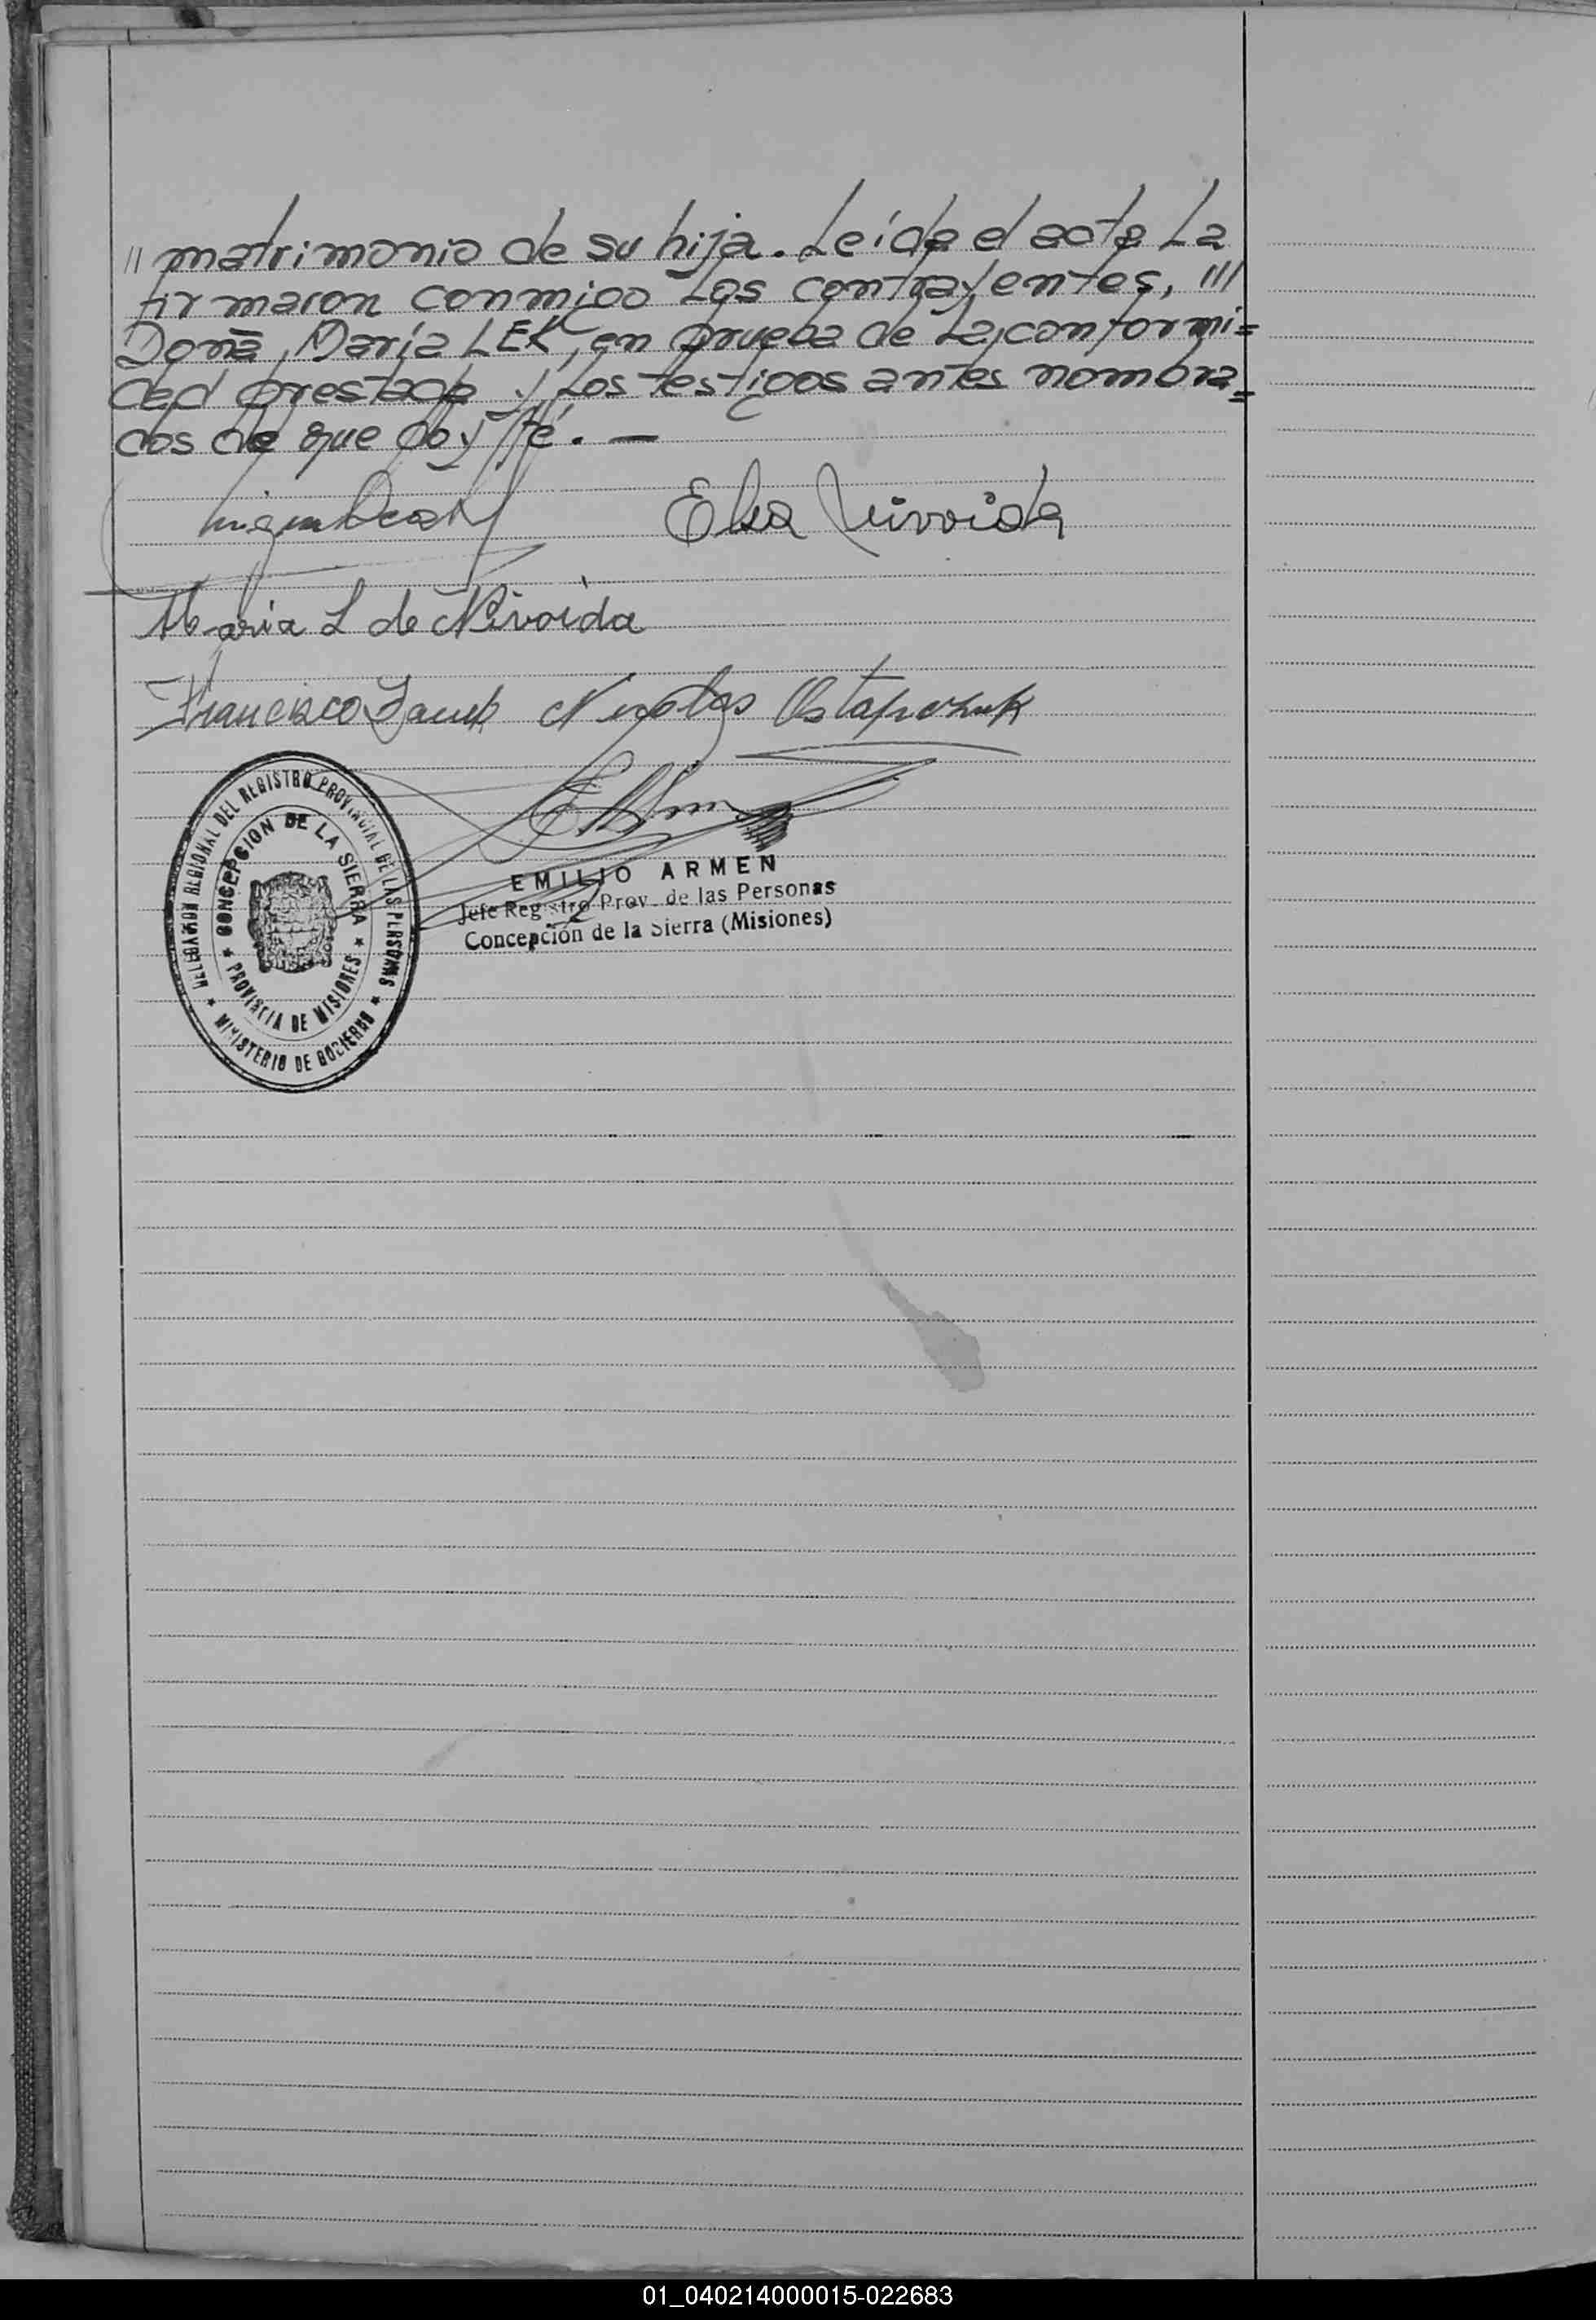 " matrimonio de su hija. Leída el acta La
firmaron conmigo Los contrayentes, ///
Doña, María LEK, en prueba de La conformi=
dad prestada y Los testigos antes nombra=
dos de que doy fé. —
Elsa Nivoida
Maria L de Nivoida
Francisco Nicolas Ostapchuk
EMILIO ARMEN
Jefe Registro Prov. de las Personas
Concepción de la Sierra (Misiones)
DELEGACION REGIONAL DEL REGISTRO PROVINCIAL DE LAS PERSONAS
★ MINISTERIO DE GOBIERNO ★
CONCEPCION DE LA SIERRA
★ PROVINCIA DE MISIONES ★
01_040214000015-022683